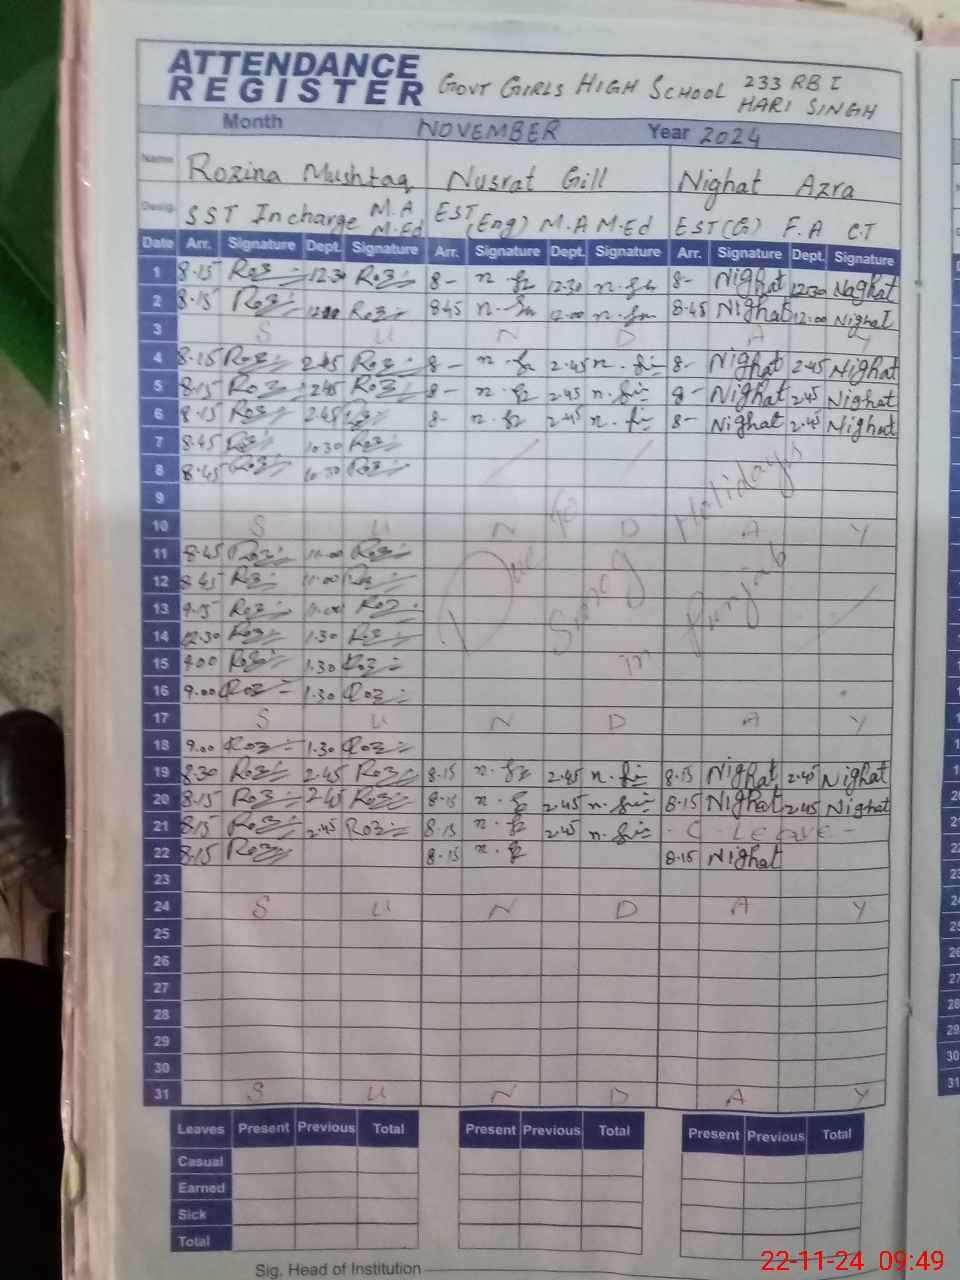 ATTENDANCE REGISTER GOVT GIRLS HIGH SCHOOL 233 RB I HARI SINGH
Month NOVEMBER Year 2024
Name Rozina Mushtaq Nusrat Gill Nighat Azra
Desig. SST Incharge M.A M.Ed EST (Eng) M.A M.Ed EST (G) F.A C.T
Date Arr. Signature Dept. Signature Arr. Signature Dept. Signature Arr. Signature Dept. Signature
1 8.15 Roz 12.30 Roz 8- 12.30 8- Nighat 12:30 Naghat
2 8.15 Roz Roz 8.45 12.00 8.45 Nighat 12.00 Nighat
3 S U N D A Y
4 8.15 Roz 2.45 Roz 8- 2.45 8- Nighat 2.45 Nighat
5 8.15 Roz 2.45 Roz 8- 2.45 8- Nighat 2.45 Nighat
6 8.15 Roz 2.45 8- 2.45 8- Nighat 2.45 Nighat
7 8.45 10.30 Roz
8 8.45 Roz 10.30 Roz
9
10 S U N D A Y
11 8.45 Roz 11.00 Roz
12 8.45 Roz 11.00 Roz
13 9.15 Roz 11.00 Roz
14 12.30 Roz 1.30 Roz
15 9.00 Roz 1.30 Roz
16 9.00 Roz 1.30 Roz
Due to Holidays
Smog in Punjab
17 S U N D A Y
18 9.00 Roz 1.30 Roz
19 8.30 Roz 2.45 Roz 8.15 2.45 8.15 Nighat 2.45 Nighat
20 8.15 Roz 2.45 Roz 8.15 2.45 8.15 Nighat 2.45 Nighat
21 8.15 Roz 2.45 Roz 8.15 2.45 - C. Leave -
22 8.15 Roz 8.15 8.15 Nighat
23
24 S U N D A Y
25
26
27
28
29
30
31 S U N D A Y
Leaves Present Previous Total Present Previous Total Present Previous Total
Casual
Earned
Sick
Total
Sig. Head of Institution
22-11-24 09:49